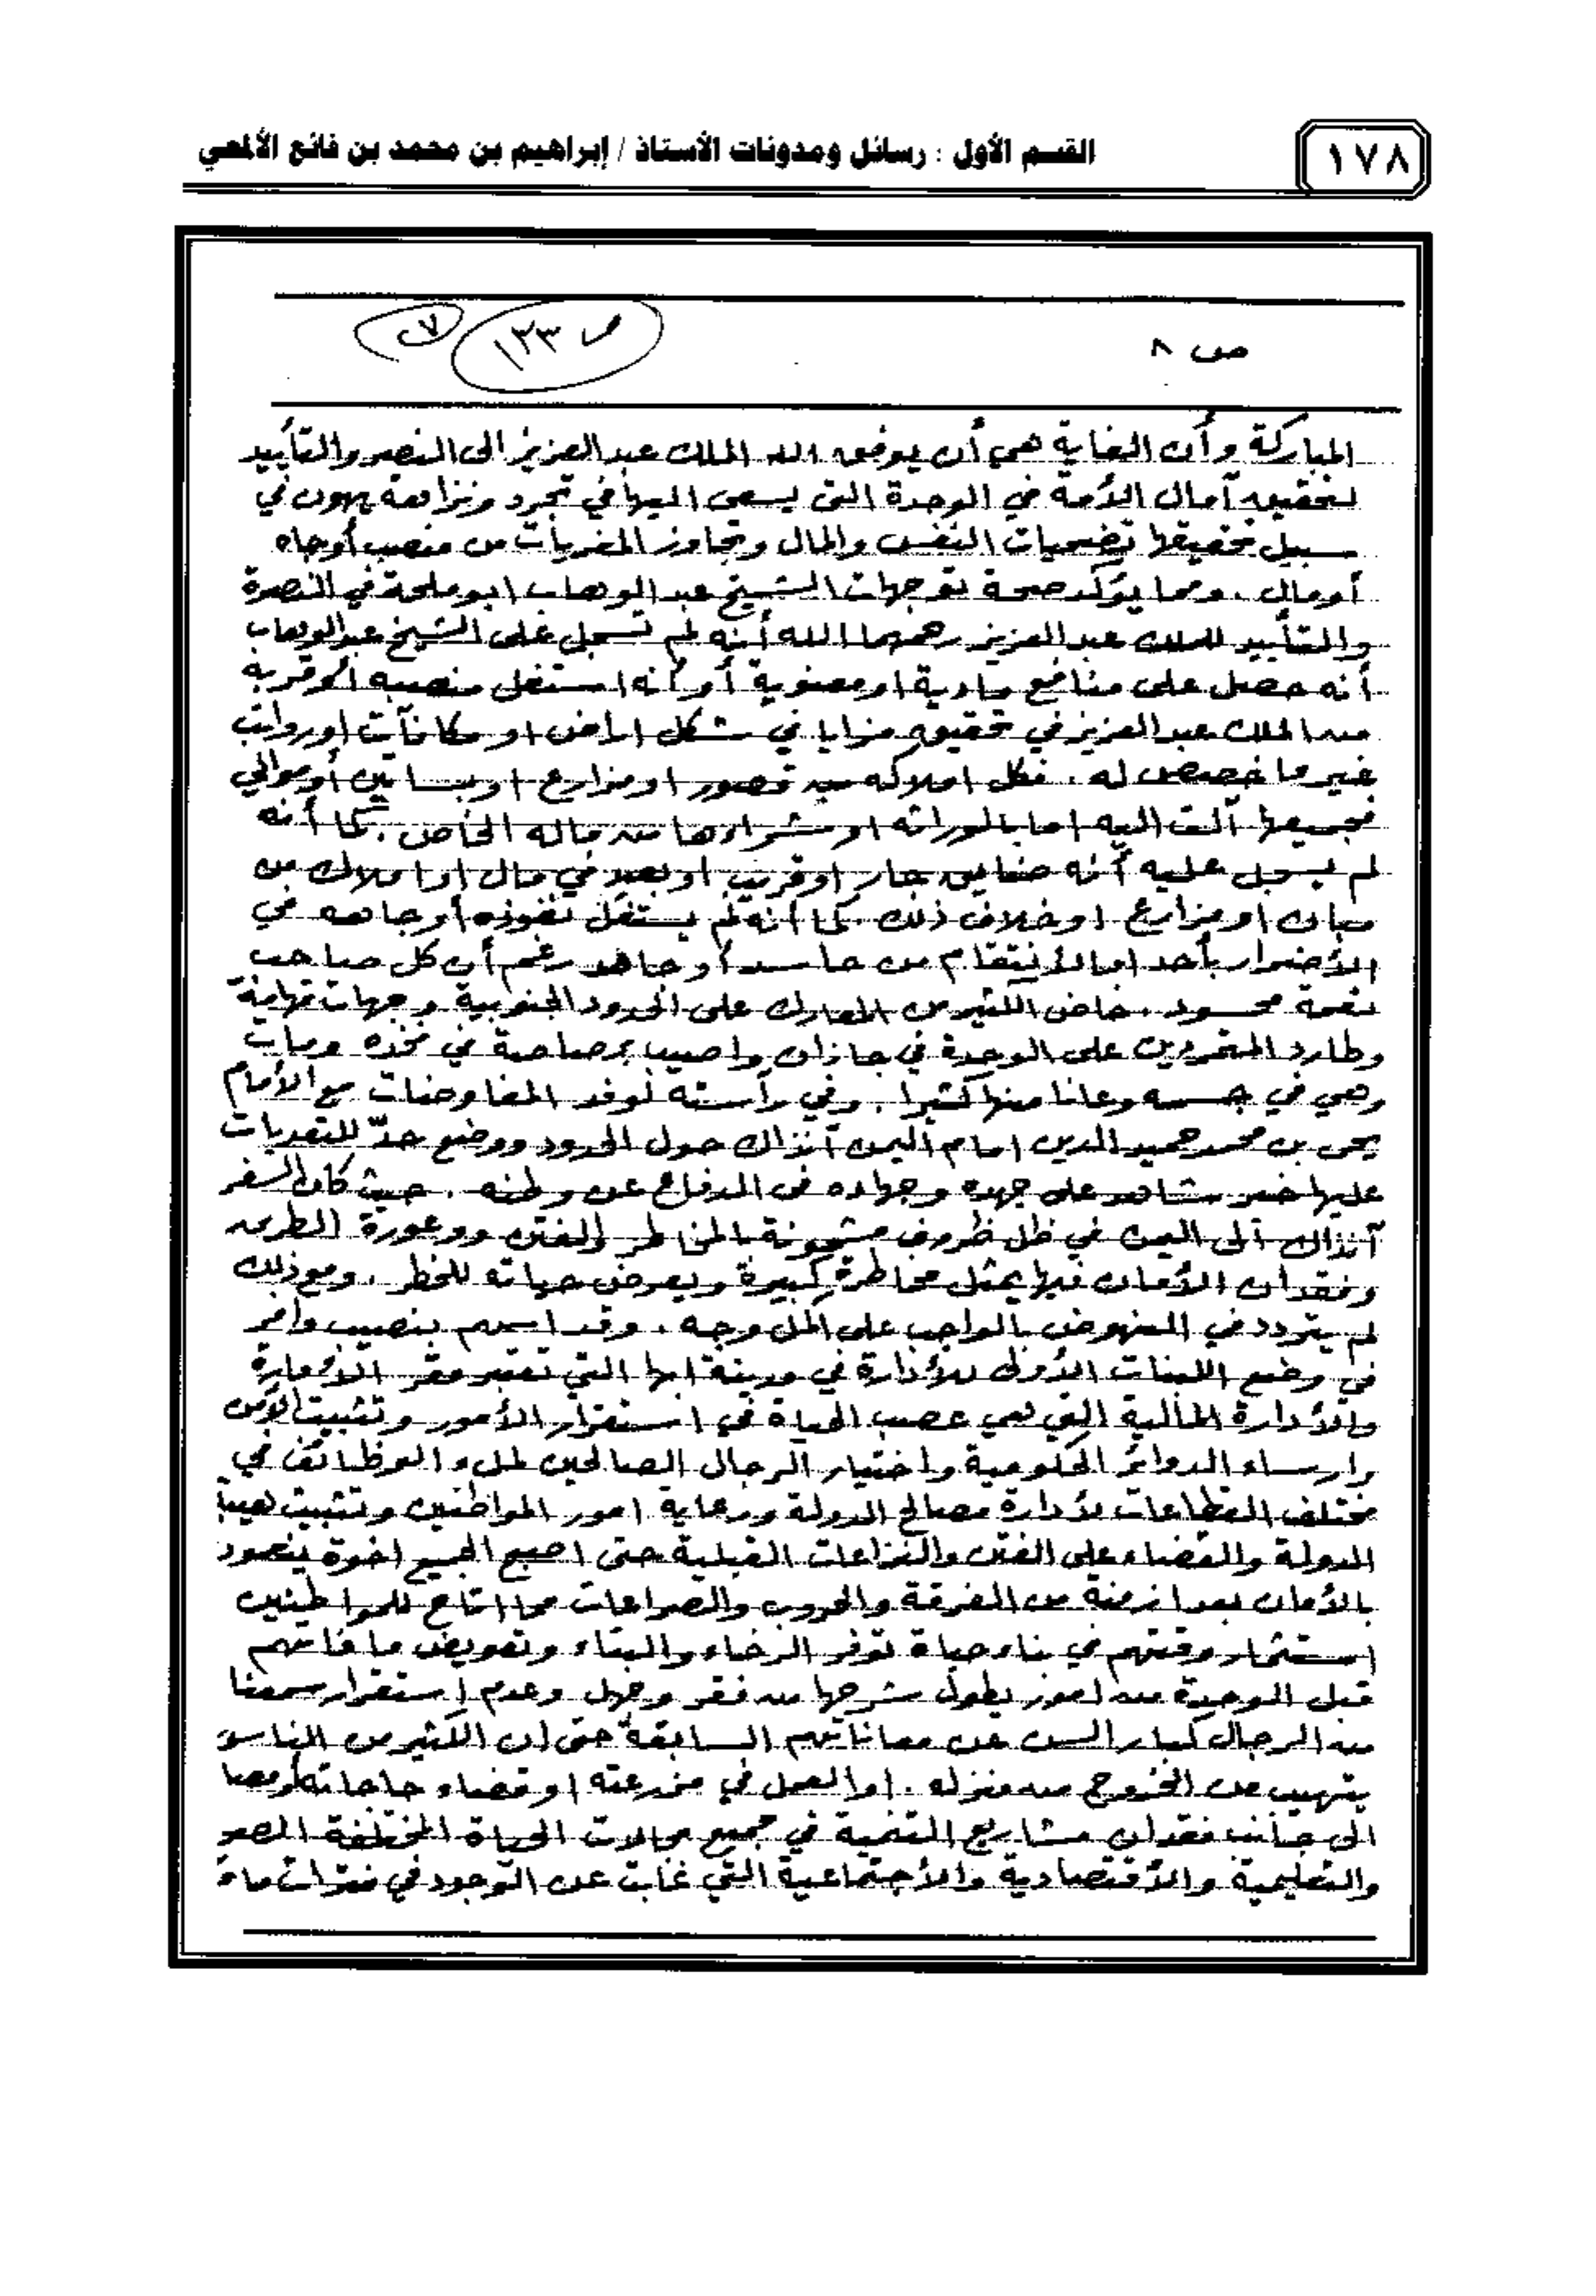 ١٧٨
القسم الأول : رسائل ومدونات الأستاذ / إبراهيم بن محمد بن فائع الألمعي
ص ٨
ص ١٣٣
المباركة وأن الغاية هي أن يوفق الله الملك عبدالعزيز الى النصر والتأييد
لتحقيق آمال الأمة في الوحدة التي يسعى اليها في تجرد ونزاهة يهون في
سبيل تحقيقها تضحيات النفس والمال وتجاوز المغريات من منصب أو جاه
أو مال . ومما يؤكد صحة توجهات الشيخ عبدالوهاب ابو ملحة في النصرة
والتأييد للملك عبدالعزيز رحمهما الله أنه لم تسجل على الشيخ عبدالوهاب
أنه حصل على منافع مادية او معنوية أو أنه استغل منصبه أو قربه
من الملك عبدالعزيز في تحقيق مزايا في شكل اراض او مكافآت او رواتب
غير ما خصص له . فكل املاكه من قصور او مزارع او بساتين أو موالي
فجميعها آلت اليه اما بالوراثه او مشراوها من ماله الخاص . كما أنه
لم يسجل عليه أنه ضايق جار او قريب او بعيد في مال او املاك من
مبان او مزارع او خلاف ذلك . كما أنه لم يستغل نفوذه أو جاهه في
الأضرار بأحد او الأنتقام من حاسد أو جاهد رغم أن كل صاحب
نعمة محسود . خاض الكثير من المعارك على الحدود الجنوبية وجهات تهامة
وطارد المتمردين على الوحدة في جازان واصيب برصاصة في فخذه ومات
وهي في جسمه وعانا منها كثيرا . وفي رآسته لوفد المفاوضات مع الأمام
يحى بن محمد حميد الدين امام اليمن آنذاك حول الحدود ووضع حدّ للتعديات
عليها خير شاهد على جهده وجهاده في الدفاع عن وطنه . حيث كان السفر
آنذاك الى اليمن في ظل ظروف مشحونة بالمخاطر والفتن ووعورة الطريق
وفقدان الأمان فيها يمثل مخاطرة كبيرة ويعرض حياته للخطر . ومع ذلك
لم يتردد في النهوض بالواجب على اكمل وجه . وقد اسهم بنصيب وافر
في وضع اللبنات الأولى للأدارة في مدينة ابها التي تعتبر مقر الأمارة
والأدارة المالية التي هي عصب الحياة في استقرار الأمور وتثبيت الأمن
وارساء الدوائر الحكومية واختيار الرجال الصالحين لملء الوظائف في
مختلف القطاعات لأدارة مصالح الدولة ورعاية امور المواطنين وتثبيت هيبة
الدولة والقضاء على الفتن والنزاعات القبلية حتى اصبح الجميع اخوة ينعمون
بالأمان بعد ازمنة من الفرقة والحروب والصراعات مما اتاح للمواطنين
إستثمار وقتهم في بناء حياة توفر الرخاء والبناء وتعويض ما فاتهم
قبل الوحدة من امور يطول شرحها من فقر وجهل وعدم إستقرار سمعنا
من الرجال كبار السن عن معاناتهم السابقة حتى ان الكثير من الناس
يتهيب من الخروج من منزله . او العمل في مزرعته او قضاء حاجاته
الى جانب فقدان مشاريع التنمية في جميع مجالات الحياة المختلفة
والتعليمية والأقتصادية والأجتماعية التي غابت عن الوجود في فترات